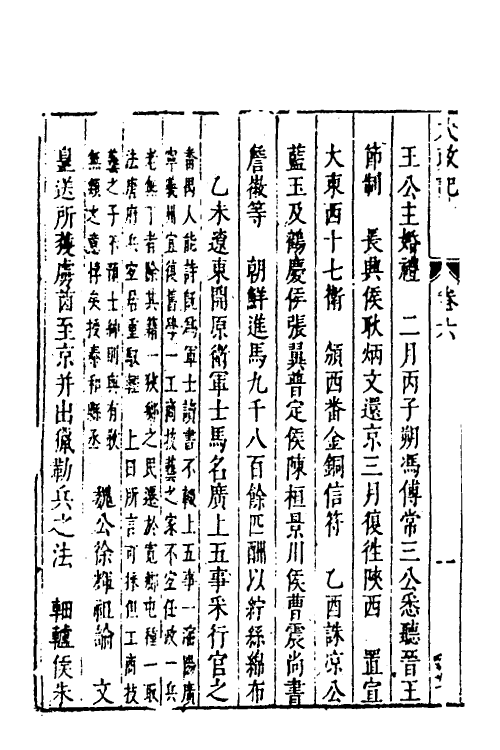 大政記
卷六
一
王公主婚禮　二月丙子朔馮傅常三公悉聽晉王
節制　長興侯耿炳文還京三月復徃陝西　置宣
大東西十七衛　頒西番金銅信符　乙酉誅凉公
藍玉及鶴慶侯張翼普定侯陳桓景川侯曹震尚書
詹徽等　朝鮮進馬九千八百餘匹酬以紵絲綿布
乙未遼東開原衛軍士馬名廣上五事采行官之
番禺人能詩既為軍士讀書不輟上五事一瀋陽廣
寧義州宜復舊學一工商技藝之家不宜任政一兵
老無丁者除其籍一狹鄉之民遷於寬鄉屯種一取
法唐府兵宜居重馭輕　上曰所言可採但工商技
藝之子不預士紳則與有教
無類之意悖矣授泰和縣丞
魏公徐輝祖諭　文
皇送所獲虜酋至京并出備勒兵之法　舳艫侯朱